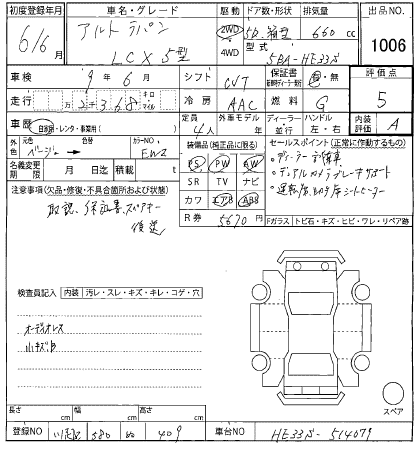 初度登録年月 車名・グレード 駆動 ドア数・形状 排気量 出品NO
6/6月 アルト ラパン 2WD 5D.箱型 660cc
LCX 5型 4WD 型式 5BA-HE33S 1006
車検 9年6月 シフト CVT 保証書 有・無 評価点
走行 万 2千368 キロ マイル 冷房 AAC 燃料 G 5
車歴 自家用・レンタ・事業用( ) 定員 4人 外車モデル 年 ディーラー・並行 ハンドル 左・右 内装評価 A
外色 元色 ベージュ 色替 カラーNO.
装備品(純正品に限る) セールスポイント(正常に作動するもの)
名義変更期限 月 日迄 積載 t
PS PW AW
・デュアルカメラブレーキサポート
注意事項(欠品・修復・不具合箇所および状態) SR TV ナビ
・運転席、助手席シートヒーター
取説、保証書、スペアキー
後送
カワ エアB ABS
R券 5670円 Fガラス トビ石・キズ・ヒビ・ワレ・リペア跡
検査員記入 内装 汚レ・スレ・キズ・キレ・コゲ・穴
オーディオレス
小キズ有
スペア
長さ cm 幅 cm 高さ cm
登録NO 580 409 車台NO HE33S-514079